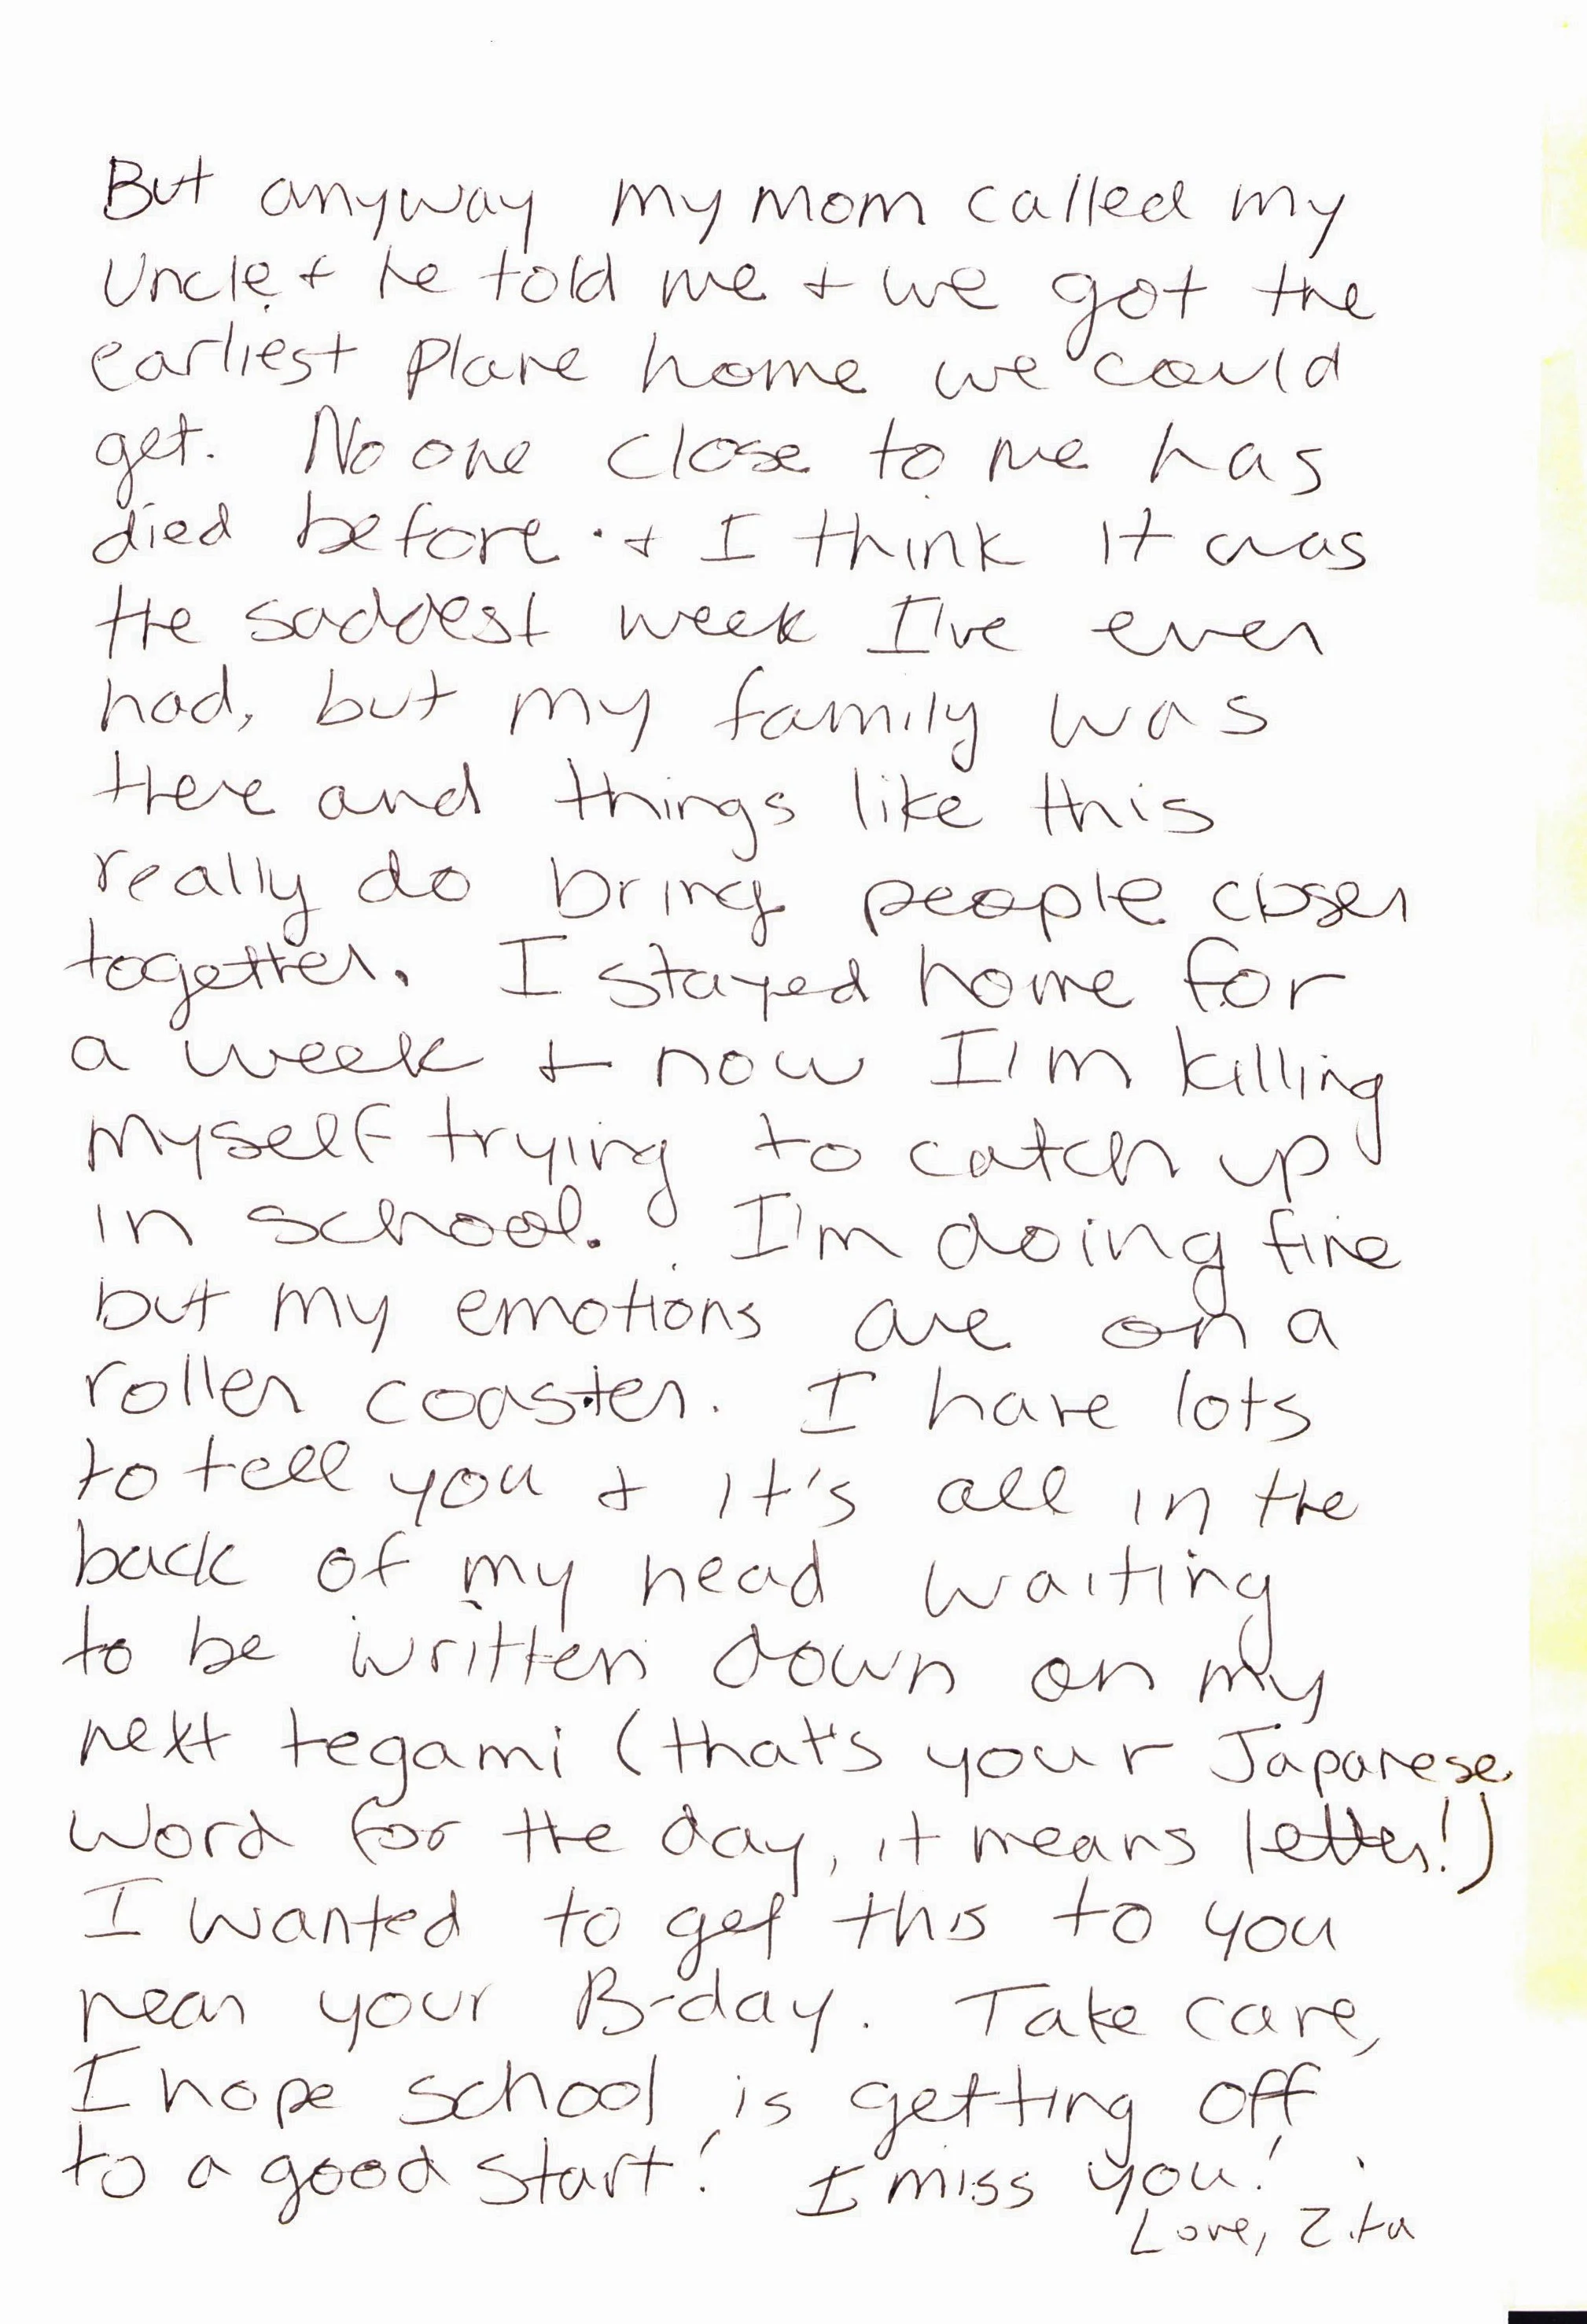 But anyway my mom called my
Uncle + he told me + we got the
earliest plane home we could
get. No one close to me has
died before + I think it was
the saddest week I've ever
had, but my family was
there and things like this
really do bring people closer
together. I stayed home for
a week + now I'm killing
myself trying to catch up
in school. I'm doing fine
but my emotions are on a
roller coaster. I have lots
to tell you + it's all in the
back of my head waiting
to be written down on my
next tegami (that's your Japanese
word for the day, it means letter!)
I wanted to get this to you
near your B-day. Take care,
I hope school is getting off
to a good start! I miss you!
Love, Zita